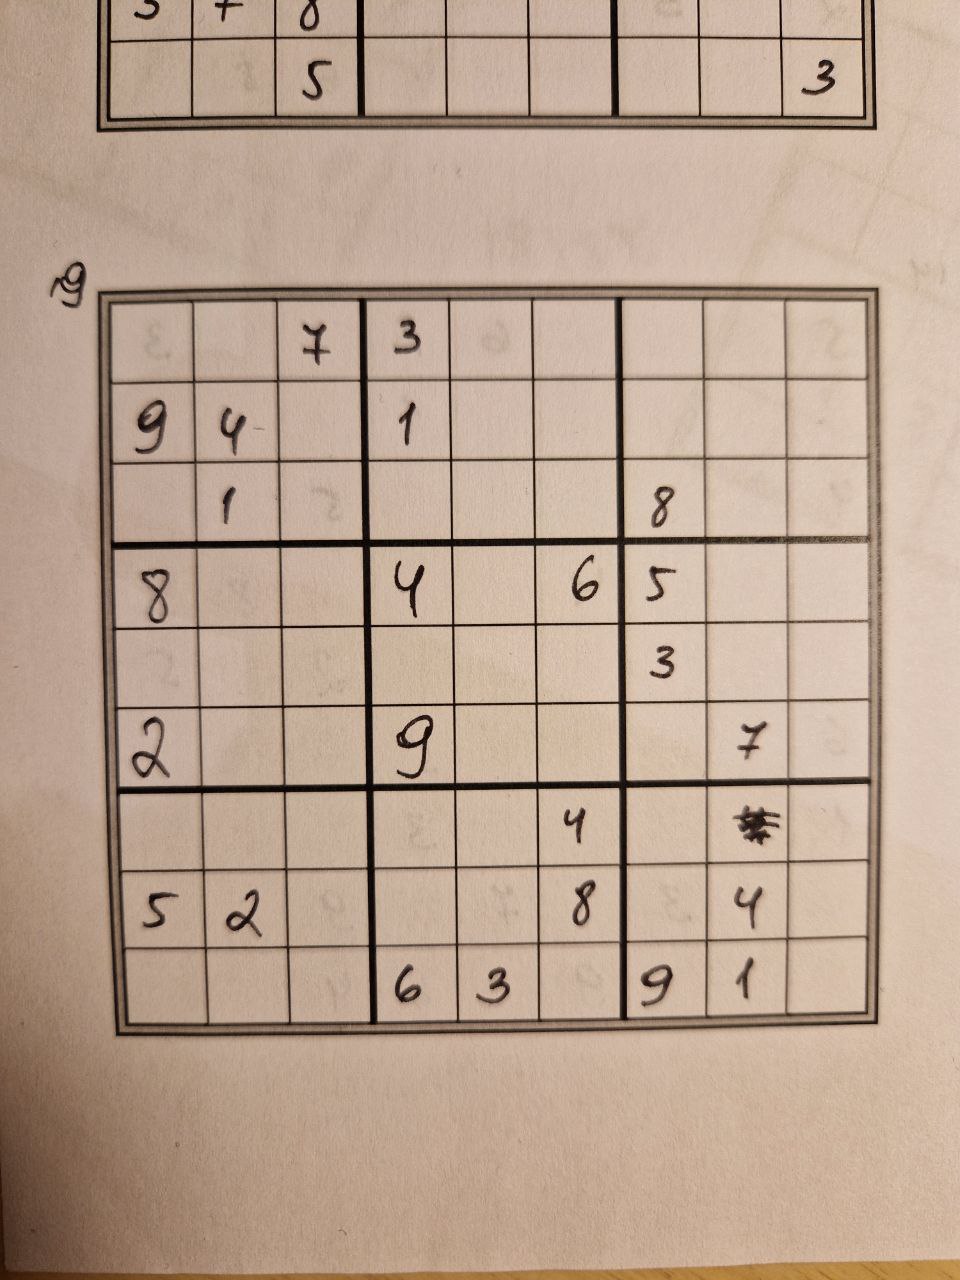 5 7 8
5 3
19
7 3
9 4 1
1 8
8 4 6 5
3
2 9 7
4
5 2 8 4
6 3 9 1